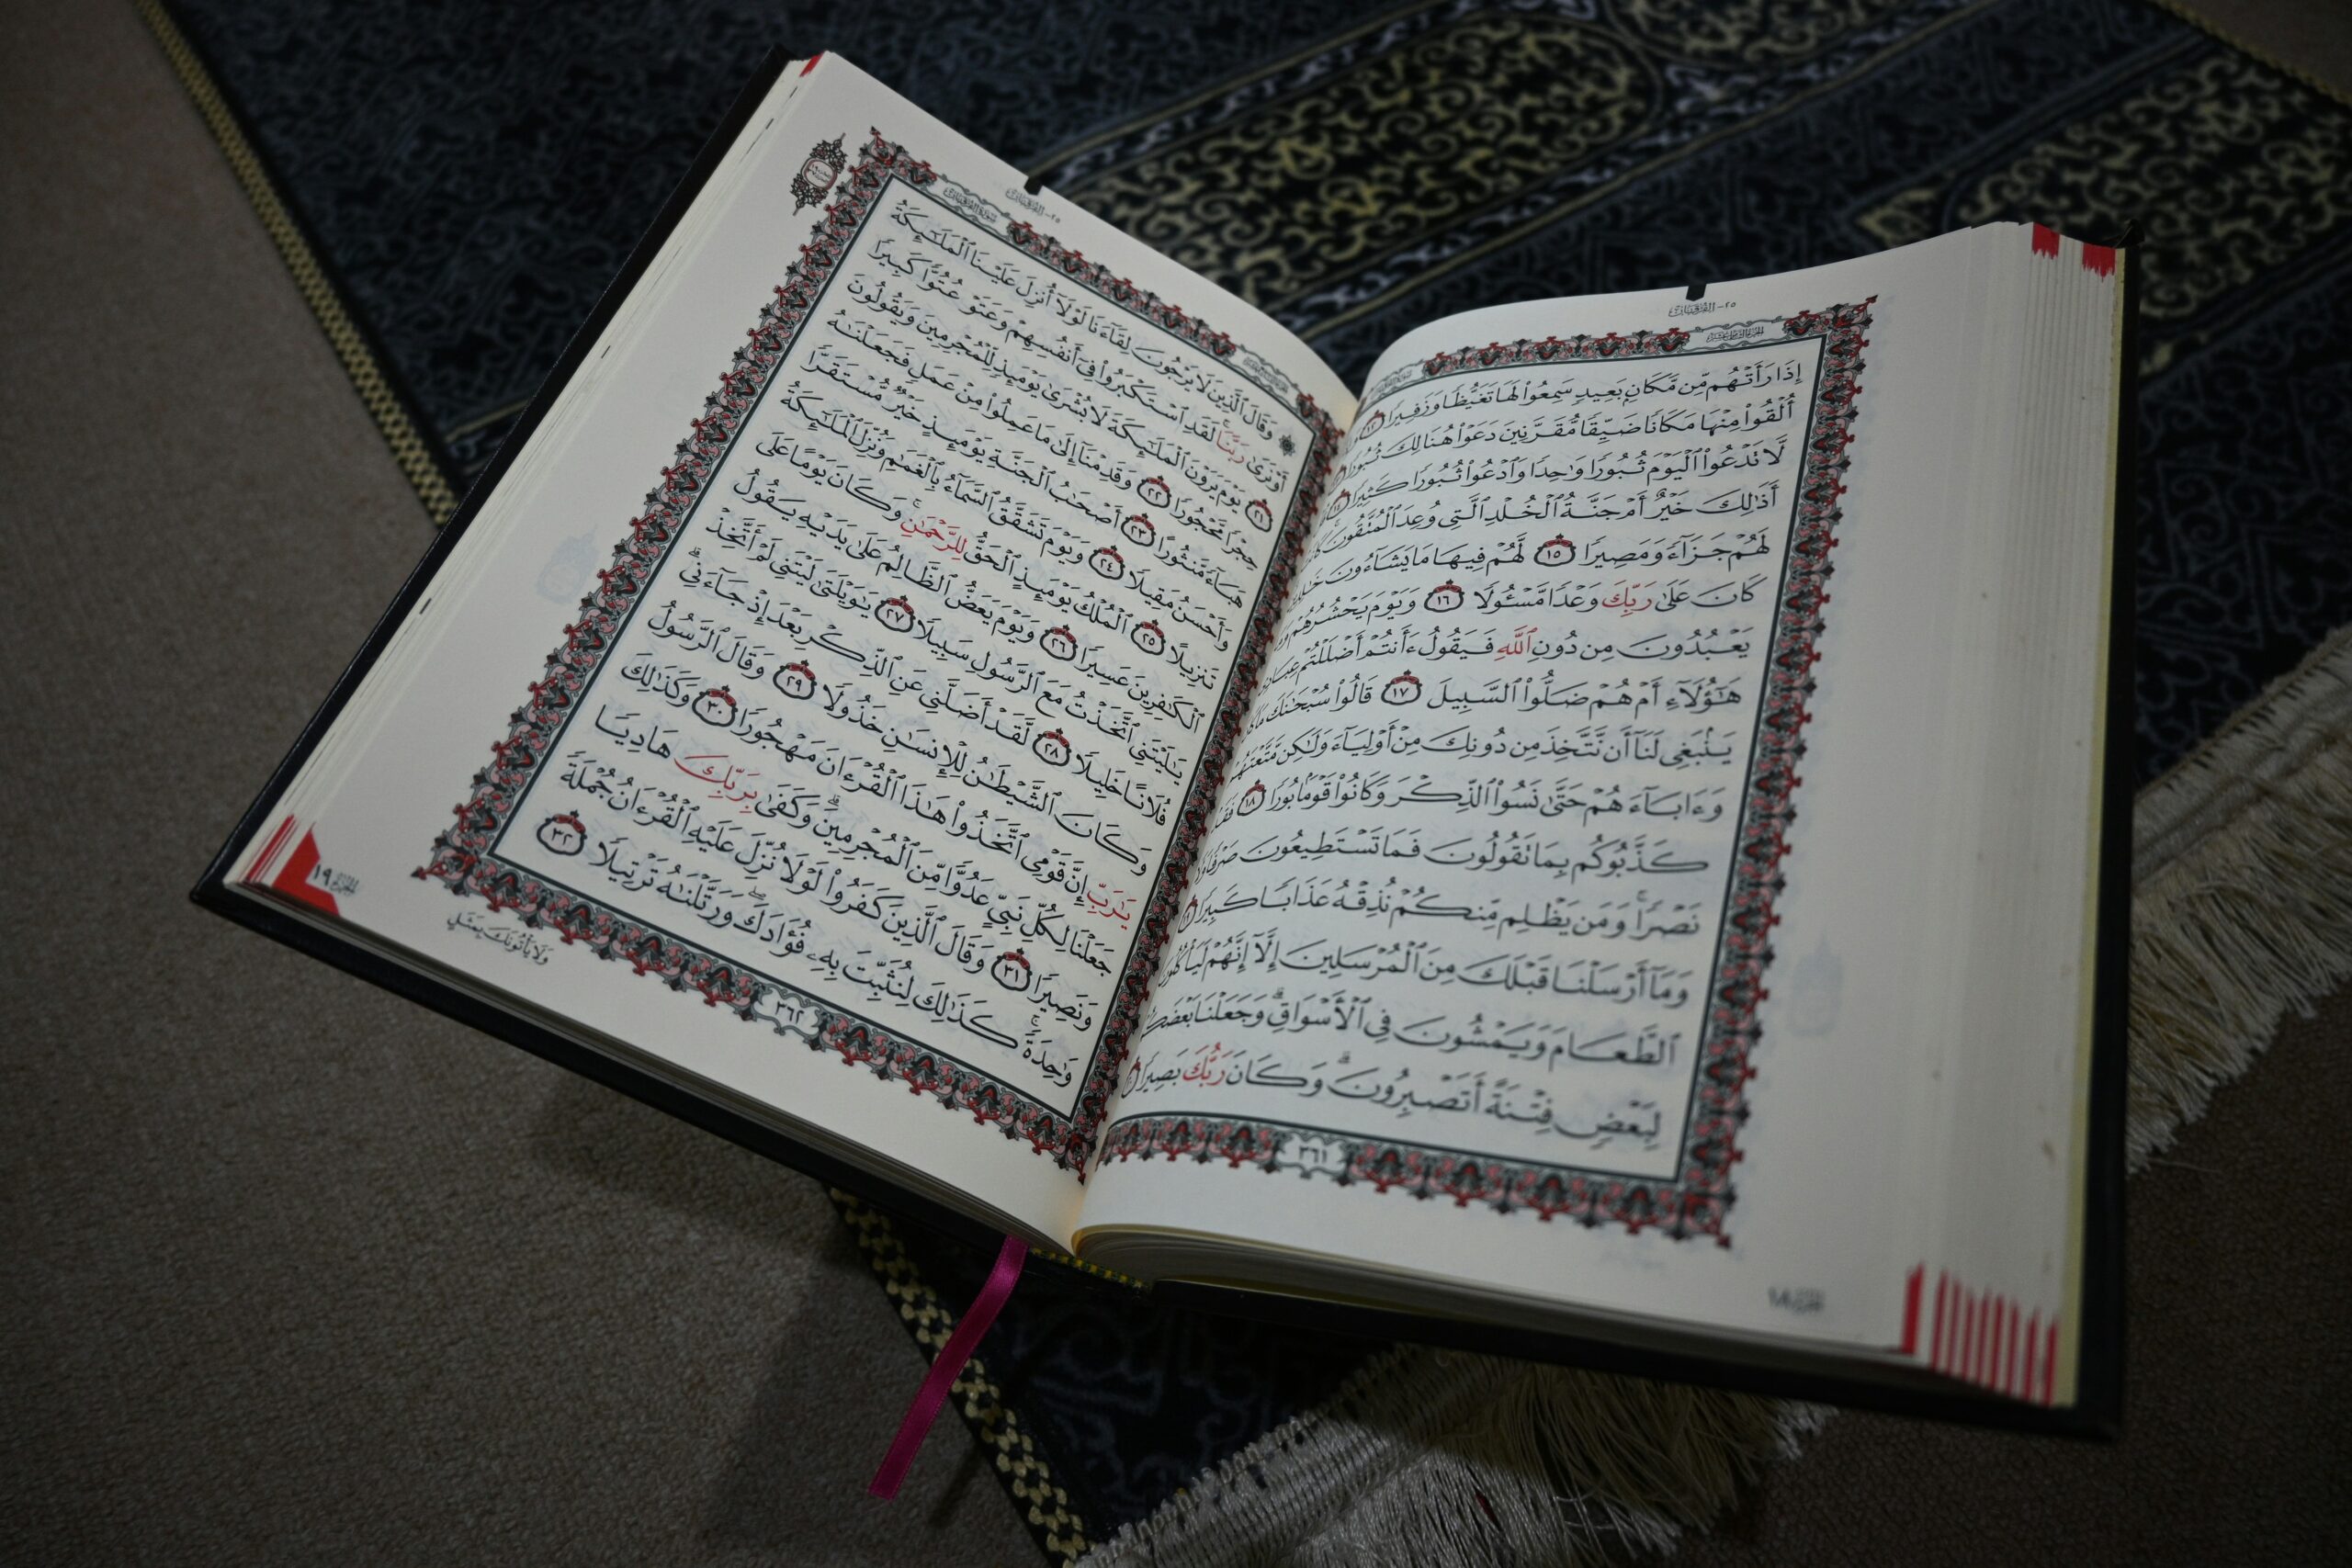 ٢٥-الفرقان
إِذَا رَأَتْهُم مِّن مَّكَانٍ بَعِيدٍ سَمِعُوا۟ لَهَا تَغَيُّظًا وَزَفِيرًا ١٢
أُلْقُوا۟ مِنْهَا مَكَانًا ضَيِّقًا مُّقَرَّنِينَ دَعَوْا۟ هُنَالِكَ ثُبُورًا
لَّا تَدْعُوا۟ ٱلْيَوْمَ ثُبُورًا وَٰحِدًا وَٱدْعُوا۟ ثُبُورًا كَثِيرًا ١٤
أَذَٰلِكَ خَيْرٌ أَمْ جَنَّةُ ٱلْخُلْدِ ٱلَّتِى وُعِدَ ٱلْمُتَّقُونَ ۚ
لَهُمْ جَزَآءً وَمَصِيرًا ١٥ لَّهُمْ فِيهَا مَا يَشَآءُونَ
كَانَ عَلَىٰ رَبِّكَ وَعْدًا مَّسْـُٔولًا ١٦ وَيَوْمَ يَحْشُرُهُمْ
يَعْبُدُونَ مِن دُونِ ٱللَّهِ فَيَقُولُ ءَأَنتُمْ أَضْلَلْتُمْ عِبَادِى
هَـٰٓؤُلَآءِ أَمْ هُمْ ضَلُّوا۟ ٱلسَّبِيلَ ١٧ قَالُوا۟ سُبْحَـٰنَكَ مَا
يَنۢبَغِى لَنَآ أَن نَّتَّخِذَ مِن دُونِكَ مِنْ أَوْلِيَآءَ وَلَـٰكِن مَّتَّعْتَهُمْ
وَءَابَآءَهُمْ حَتَّىٰ نَسُوا۟ ٱلذِّكْرَ وَكَانُوا۟ قَوْمًۢا بُورًا ١٨
كَذَّبُوكُم بِمَا تَقُولُونَ فَمَا تَسْتَطِيعُونَ صَرْفًا
نَصْرًا ۚ وَمَن يَظْلِم مِّنكُمْ نُذِقْهُ عَذَابًا كَبِيرًا ١٩
وَمَآ أَرْسَلْنَا قَبْلَكَ مِنَ ٱلْمُرْسَلِينَ إِلَّآ إِنَّهُمْ لَيَأْكُلُونَ
ٱلطَّعَامَ وَيَمْشُونَ فِى ٱلْأَسْوَاقِ ۗ وَجَعَلْنَا بَعْضَكُمْ
لِبَعْضٍ فِتْنَةً أَتَصْبِرُونَ ۗ وَكَانَ رَبُّكَ بَصِيرًا
٣٦١
الجزء ١٨
٢٥-الفرقان
۞ وَقَالَ ٱلَّذِينَ لَا يَرْجُونَ لِقَآءَنَا لَوْلَآ أُنزِلَ عَلَيْنَا ٱلْمَلَـٰٓئِكَةُ
أَوْ نَرَىٰ رَبَّنَا ۗ لَقَدِ ٱسْتَكْبَرُوا۟ فِىٓ أَنفُسِهِمْ وَعَتَوْ عُتُوًّا كَبِيرًا
٢١ يَوْمَ يَرَوْنَ ٱلْمَلَـٰٓئِكَةَ لَا بُشْرَىٰ يَوْمَئِذٍ لِّلْمُجْرِمِينَ وَيَقُولُونَ
حِجْرًا مَّحْجُورًا ٢٢ وَقَدِمْنَآ إِلَىٰ مَا عَمِلُوا۟ مِنْ عَمَلٍ فَجَعَلْنَـٰهُ
هَبَآءً مَّنثُورًا ٢٣ أَصْحَـٰبُ ٱلْجَنَّةِ يَوْمَئِذٍ خَيْرٌ مُّسْتَقَرًّا
وَأَحْسَنُ مَقِيلًا ٢٤ وَيَوْمَ تَشَقَّقُ ٱلسَّمَآءُ بِٱلْغَمَـٰمِ وَنُزِّلَ ٱلْمَلَـٰٓئِكَةُ
تَنزِيلًا ٢٥ ٱلْمُلْكُ يَوْمَئِذٍ ٱلْحَقُّ لِلرَّحْمَـٰنِ ۚ وَكَانَ يَوْمًا عَلَى
ٱلْكَـٰفِرِينَ عَسِيرًا ٢٦ وَيَوْمَ يَعَضُّ ٱلظَّالِمُ عَلَىٰ يَدَيْهِ يَقُولُ
يَـٰلَيْتَنِى ٱتَّخَذْتُ مَعَ ٱلرَّسُولِ سَبِيلًا ٢٧ يَـٰوَيْلَتَىٰ لَيْتَنِى لَمْ أَتَّخِذْ
فُلَانًا خَلِيلًا ٢٨ لَّقَدْ أَضَلَّنِى عَنِ ٱلذِّكْرِ بَعْدَ إِذْ جَآءَنِى ۗ
وَكَانَ ٱلشَّيْطَـٰنُ لِلْإِنسَـٰنِ خَذُولًا ٢٩ وَقَالَ ٱلرَّسُولُ
يَـٰرَبِّ إِنَّ قَوْمِى ٱتَّخَذُوا۟ هَـٰذَا ٱلْقُرْءَانَ مَهْجُورًا ٣٠ وَكَذَٰلِكَ
جَعَلْنَا لِكُلِّ نَبِىٍّ عَدُوًّا مِّنَ ٱلْمُجْرِمِينَ ۗ وَكَفَىٰ بِرَبِّكَ هَادِيًا
وَنَصِيرًا ٣١ وَقَالَ ٱلَّذِينَ كَفَرُوا۟ لَوْلَا نُزِّلَ عَلَيْهِ ٱلْقُرْءَانُ جُمْلَةً
وَٰحِدَةً ۚ كَذَٰلِكَ لِنُثَبِّتَ بِهِۦ فُؤَادَكَ ۖ وَرَتَّلْنَـٰهُ تَرْتِيلًا ٣٢
٣٦٢
وَلَا يَأْتُونَكَ بِمَثَلٍ
الجزء ١٩